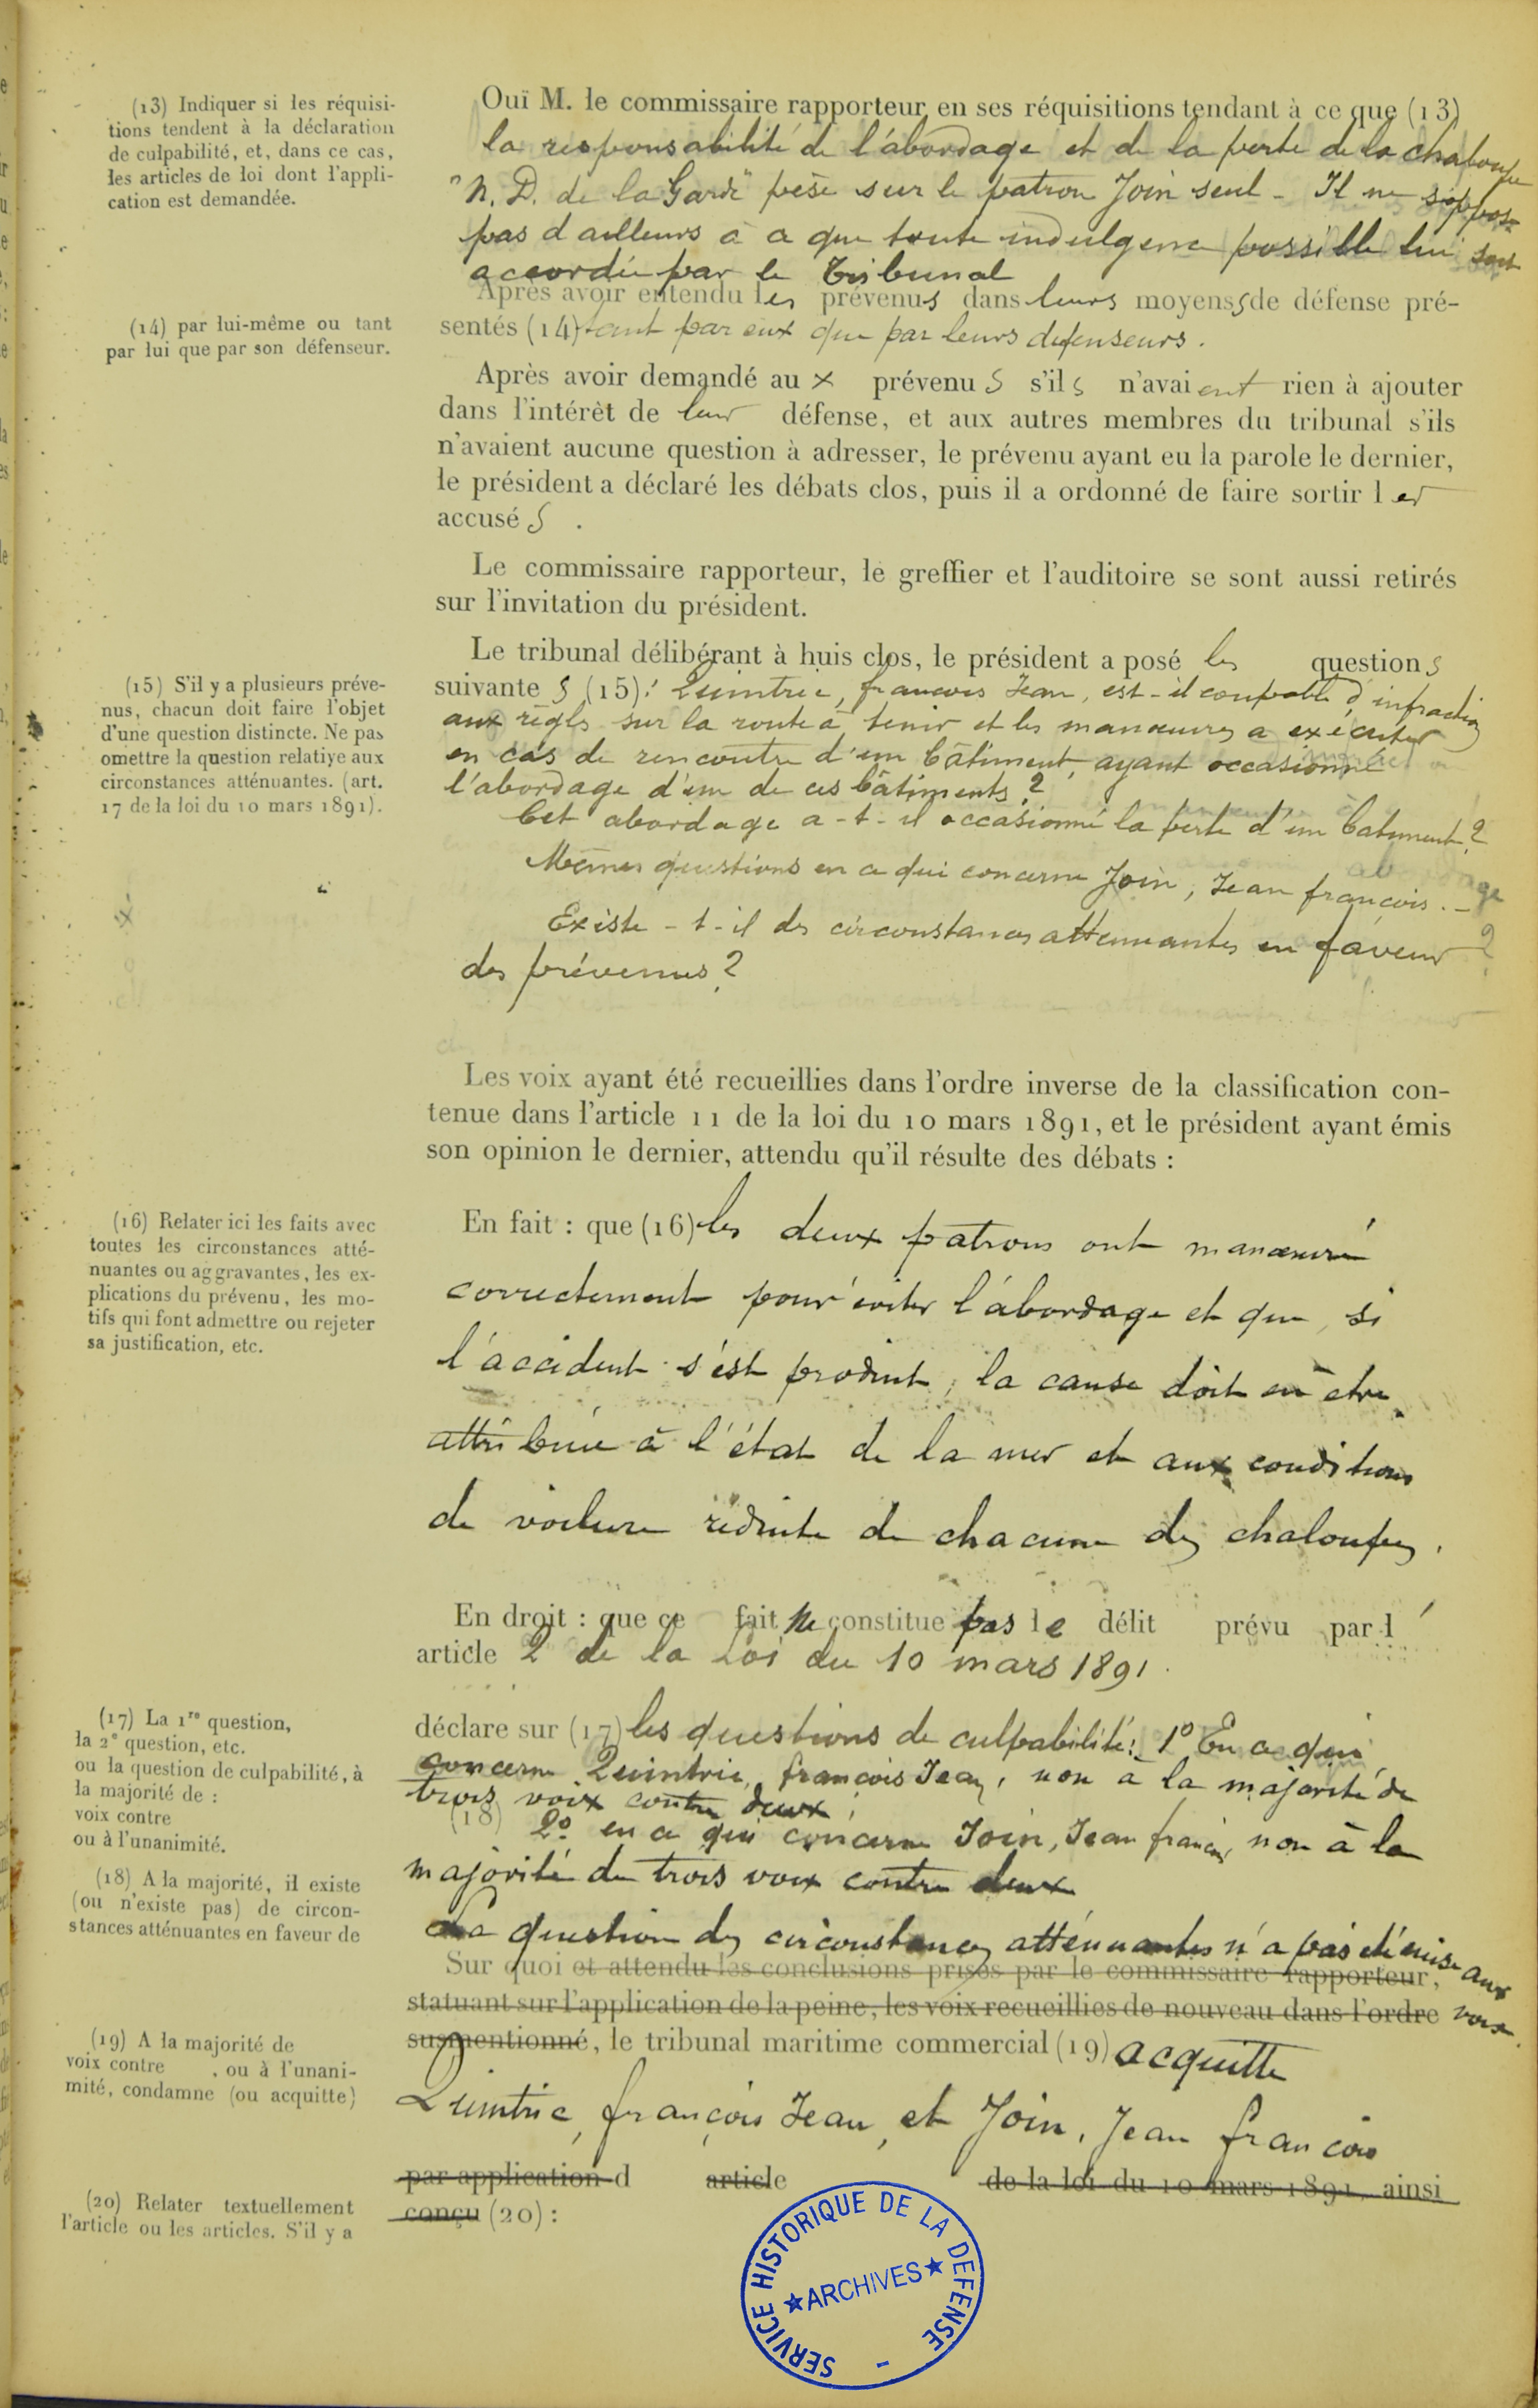 (13) Indiquer si les réquisi-
tions tendent à la déclaration
de culpabilité, et, dans ce cas,
les articles de loi dont l'appli-
cation est demandée.
Ouï M. le commissaire rapporteur en ses réquisitions tendant à ce que (13)
la responsabilité de l'abordage et de la perte de la chaloupe
"N. D. de la Garde" pèse sur le patron Join seul - Il ne s'oppose
pas d'ailleurs à ce que toute indulgence possible lui soit
accordée par le Tribunal
Après avoir entendu les prévenus dans leurs moyens de défense pré-
sentés (14) tant par eux que par leurs défenseurs.
(14) par lui-même ou tant
par lui que par son défenseur.
Après avoir demandé aux prévenus s'ils n'avaient rien à ajouter
dans l'intérêt de leur défense, et aux autres membres du tribunal s'ils
n'avaient aucune question à adresser, le prévenu ayant eu la parole le dernier,
le président a déclaré les débats clos, puis il a ordonné de faire sortir les
accusés.
Le commissaire rapporteur, le greffier et l'auditoire se sont aussi retirés
sur l'invitation du président.
Le tribunal délibérant à huis clos, le président a posé les questions
suivantes (15): Quintric, françois Jean, est-il coupable d'infraction
aux règles sur la route à tenir et les manœuvres a exécuter
en cas de rencontre d'un bâtiment, ayant occasionné
l'abordage d'un de ces bâtiments ?
Cet abordage a-t-il occasionné la perte d'un batiment ?
Mêmes questions en ce qui concerne Join, Jean françois. -
Existe-t-il des circonstances attenuantes en faveur
des prévenus ?
(15) S'il y a plusieurs préve-
nus, chacun doit faire l'objet
d'une question distincte. Ne pas
omettre la question relative aux
circonstances atténuantes. (art.
17 de la loi du 10 mars 1891).
Les voix ayant été recueillies dans l'ordre inverse de la classification con-
tenue dans l'article 11 de la loi du 10 mars 1891, et le président ayant émis
son opinion le dernier, attendu qu'il résulte des débats :
(16) Relater ici les faits avec
toutes les circonstances atté-
nuantes ou aggravantes, les ex-
plications du prévenu, les mo-
tifs qui font admettre ou rejeter
sa justification, etc.
En fait : que (16) les deux patrons ont manœuvré
correctement pour éviter l'abordage et que, si
l'accident s'est produit, la cause doit en être
attribuée à l'état de la mer et aux conditions
de voilure réduite de chacune des chaloupes.
En droit : que ce fait ne constitue pas le délit prévu par l'
article 2 de la Loi du 10 mars 1891.
(17) La 1re question,
la 2e question, etc.
ou la question de culpabilité, à
la majorité de :
voix contre
ou à l'unanimité.
déclare sur (17) les questions de culpabilité: 1° En ce qui
concerne Quintric, françois Jean, non à la majorité de
trois voix contre deux;
(18) 2° en ce qui concerne Join, Jean françois, non à la
majorité de trois voix contre deux
La question des circonstances atténuantes n'a pas été mise aux
voix.
(18) A la majorité, il existe
(ou n'existe pas) de circon-
stances atténuantes en faveur de
Sur quoi et attendu les conclusions prises par le commissaire rapporteur,
statuant sur l'application de la peine, les voix recueillies de nouveau dans l'ordre
susmentionné, le tribunal maritime commercial (19) acquitte
Quintric, françois Jean, et Join, Jean françois
par application d article de la loi du 10 mars 1891, ainsi
conçu (20) :
(19) A la majorité de
voix contre , ou à l'unani-
mité, condamne (ou acquitte)
(20) Relater textuellement
l'article ou les articles. S'il y a
SERVICE HISTORIQUE DE LA DEFENSE -
★ARCHIVES★